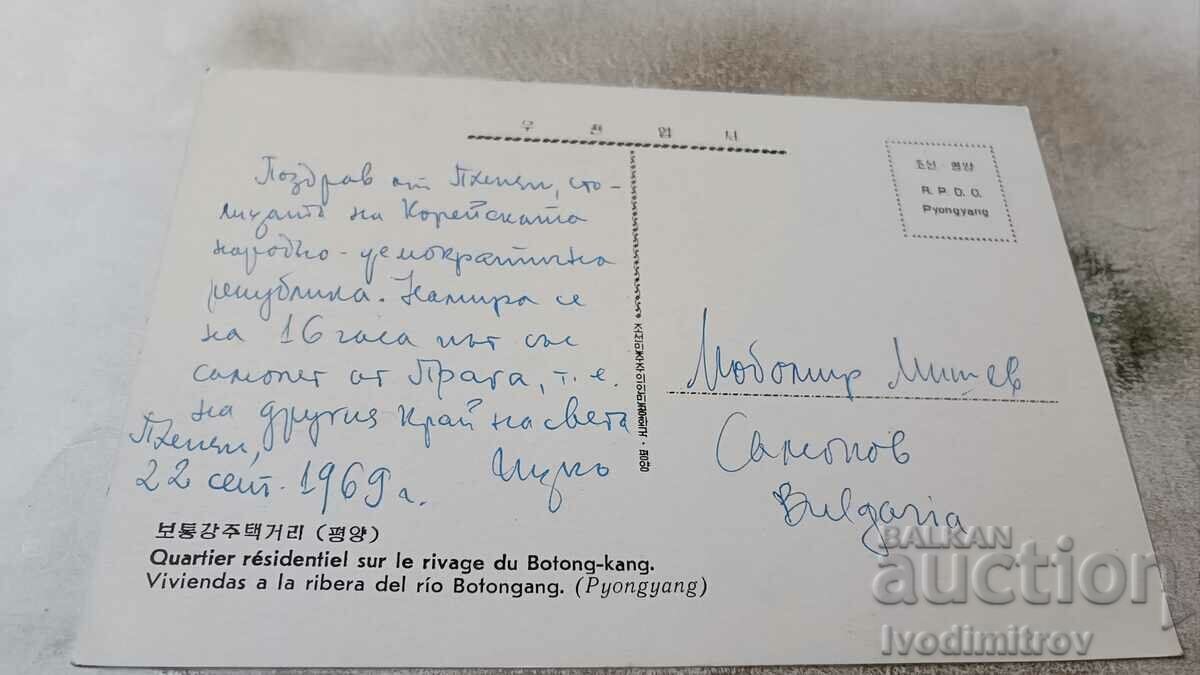 우 편 엽 서
Поздрав от Пхенян, сто-
лицата на Корейската
народно-демократична
република. Намира се
на 16 часа път със
самолет от Прага, т.е.
на другия край на света
Пхенян,
22 септ. 1969 г.
조선·평양
R.P.D.C.
Pyongyang
Любомир Митев
Самоков
Bulgaria
보통강주택거리 (평양)
Quartier résidentiel sur le rivage du Botong-kang.
Viviendas a la ribera del río Botongang. (Pyongyang)
BALKAN
auction
Ivodimitrov